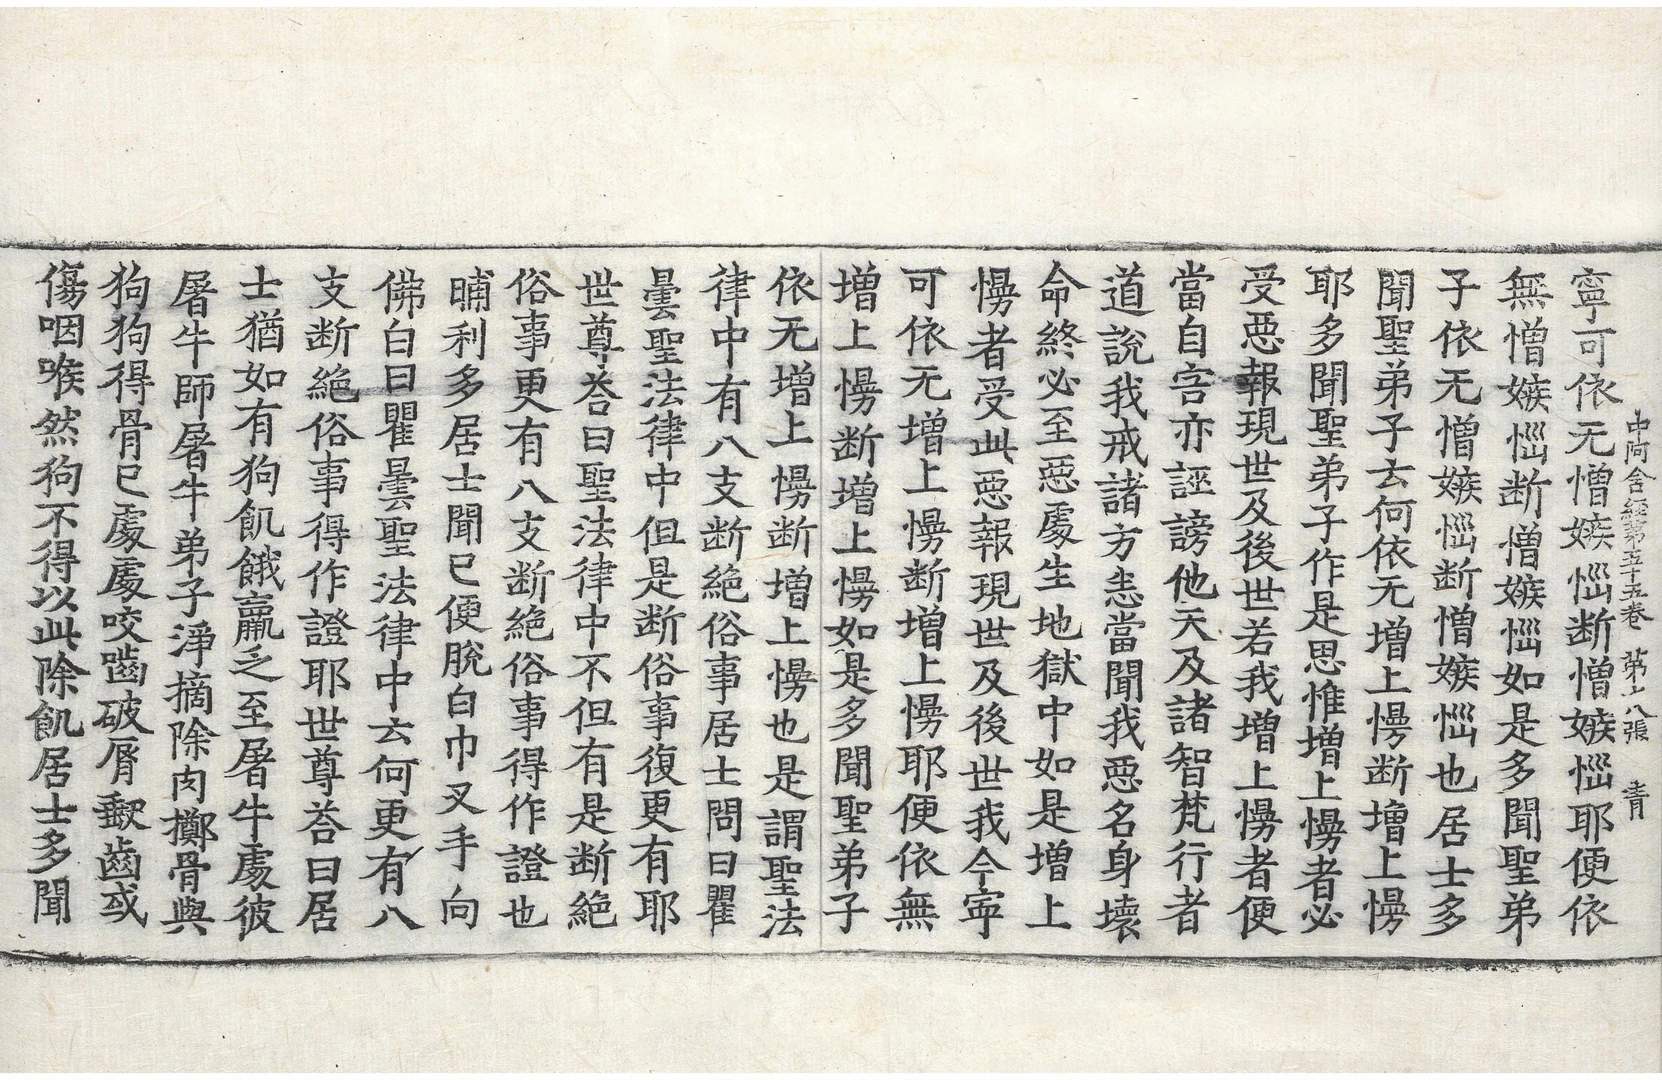 中阿含經第五十五卷 第十八張 青
寧可依无憎嫉惱断憎嫉惱耶便依
無憎嫉惱断憎嫉惱如是多聞聖弟
子依无憎嫉惱断憎嫉惱也居士多
聞聖弟子去何依无増上慢断増上慢
耶多聞聖弟子作是思惟増上慢者必
受惡報現世及後世若我増上慢者便
當自害亦誣謗他天及諸智梵行者
道説我戒諸方悉當聞我惡名身壞
命終必至惡處生地獄中如是増上
慢者受此惡報現世及後世我今寧
可依无増上慢断増上慢耶便依無
増上慢断増上慢如是多聞聖弟子
依无増上慢断増上慢也是謂聖法
律中有八支断絶俗事居士問曰瞿
曇聖法律中但是断俗事復更有耶
世尊荅曰聖法律中不但有是断絶
俗事更有八支断絶俗事得作證也
晡利多居士聞已便脫白巾叉手向
佛白曰瞿曇聖法律中云何更有八
支断絶俗事得作證耶世尊荅曰居
士猶如有狗飢餓羸乏至屠牛處彼
屠牛師屠牛弟子淨摘除肉擲骨與
狗狗得骨已處處咬嚙破脣㰳齒或
傷咽喉然狗不得以此除飢居士多聞